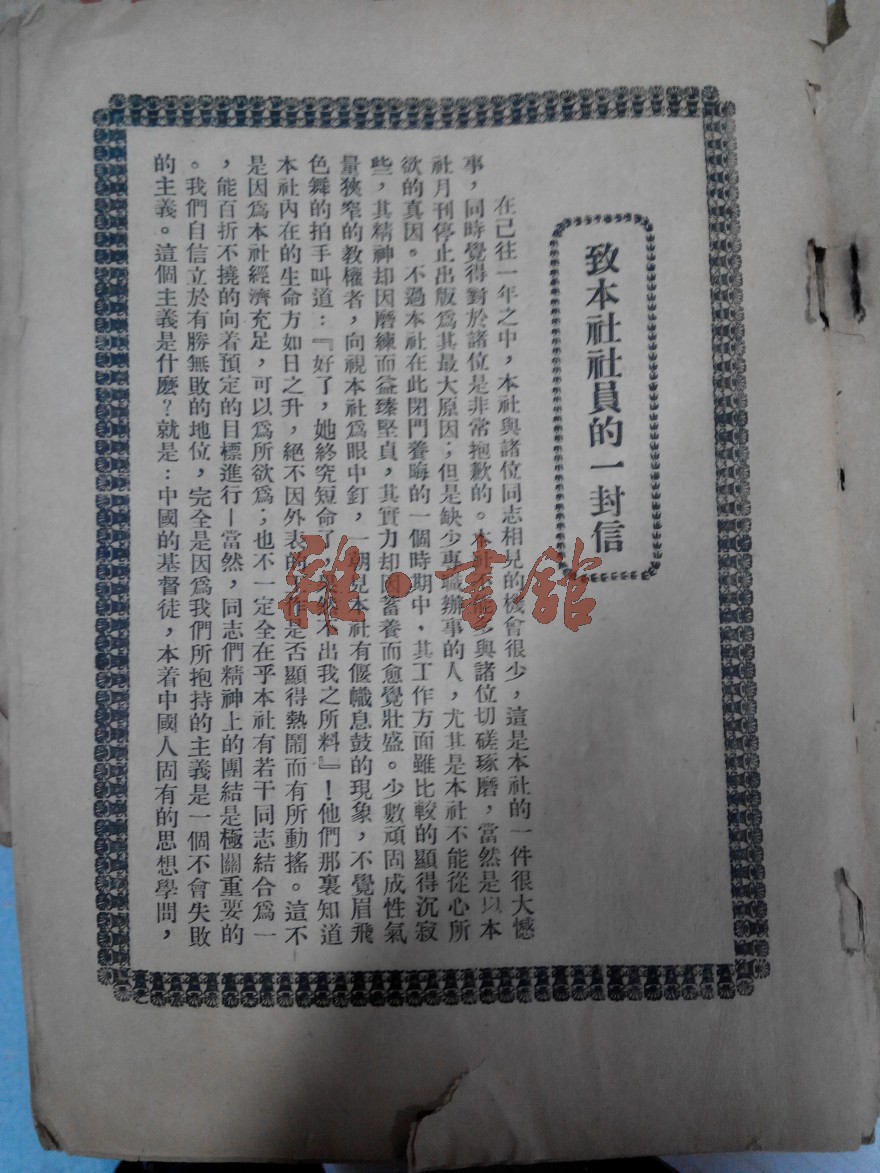 致本社社員的一封信
在己往一年之中，本社與諸位同志相見的機會很少，這是本社的一件很大憾
事，同時覺得對於諸位是非常抱歉的。本社不能多與諸位切磋琢磨，當然是以本
社月刊停止出版爲其最大原因；但是缺少專職辦事的人，尤其是本社不能從心所
欲的真因。不過本社在此閉門養晦的一個時期中，其工作方面雖比較的顯得沉寂
些，其精神却因磨練而益臻堅貞，其實力却因蓄養而愈覺壯盛。少數頑固成性氣
量狹窄的教權者，向視本社爲眼中釘，一朝見本社有偃幟息鼓的現象，不覺眉飛
色舞的拍手叫道：『好了，她終究短命了，不出我之所料』！他們那裏知道
本社內在的生命方如日之升，絕不因外表的工作是否顯得熱鬧而有所動搖。這不
是因爲本社經濟充足，可以爲所欲爲；也不一定全在乎本社有若干同志結合爲一
，能百折不撓的向着預定的目標進行－當然，同志們精神上的團結是極關重要的
。我們自信立於有勝無敗的地位，完全是因爲我們所抱持的主義是一個不會失敗
的主義。這個主義是什麽？就是：中國的基督徒，本着中國人固有的思想學問，
雜·書館